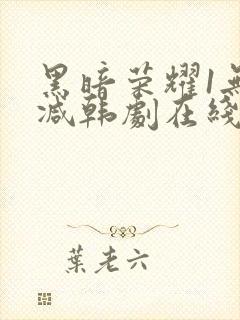 黑暗荣耀1無
减韩劇在綫
葉老六